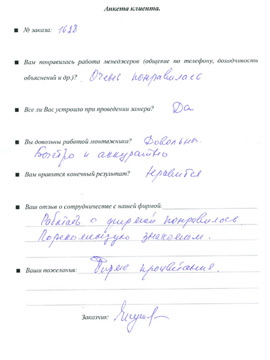 Анкета клиента.
№ заказа: 1628
Вам понравилась работа менеджеров (общение по телефону, доходчивость
объяснений и др.)? Очень понравилась
Все ли Вас устроило при проведении замера? Да
Вы довольны работой монтажника? Довольны.
Быстро и аккуратно
Вам нравится конечный результат? Нравится
Ваш отзыв о сотрудничестве с нашей фирмой.
Работать с фирмой понравилось
Порекомендую знакомым.
Ваши пожелания: Фирме процветания.
Заказчик: